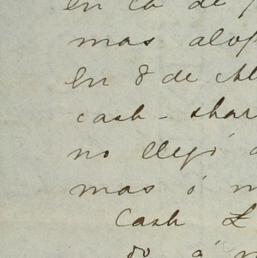 en ca de
mas alog
en 8 de
cash - shar
no llegó
mas ó m
Cash £
do á